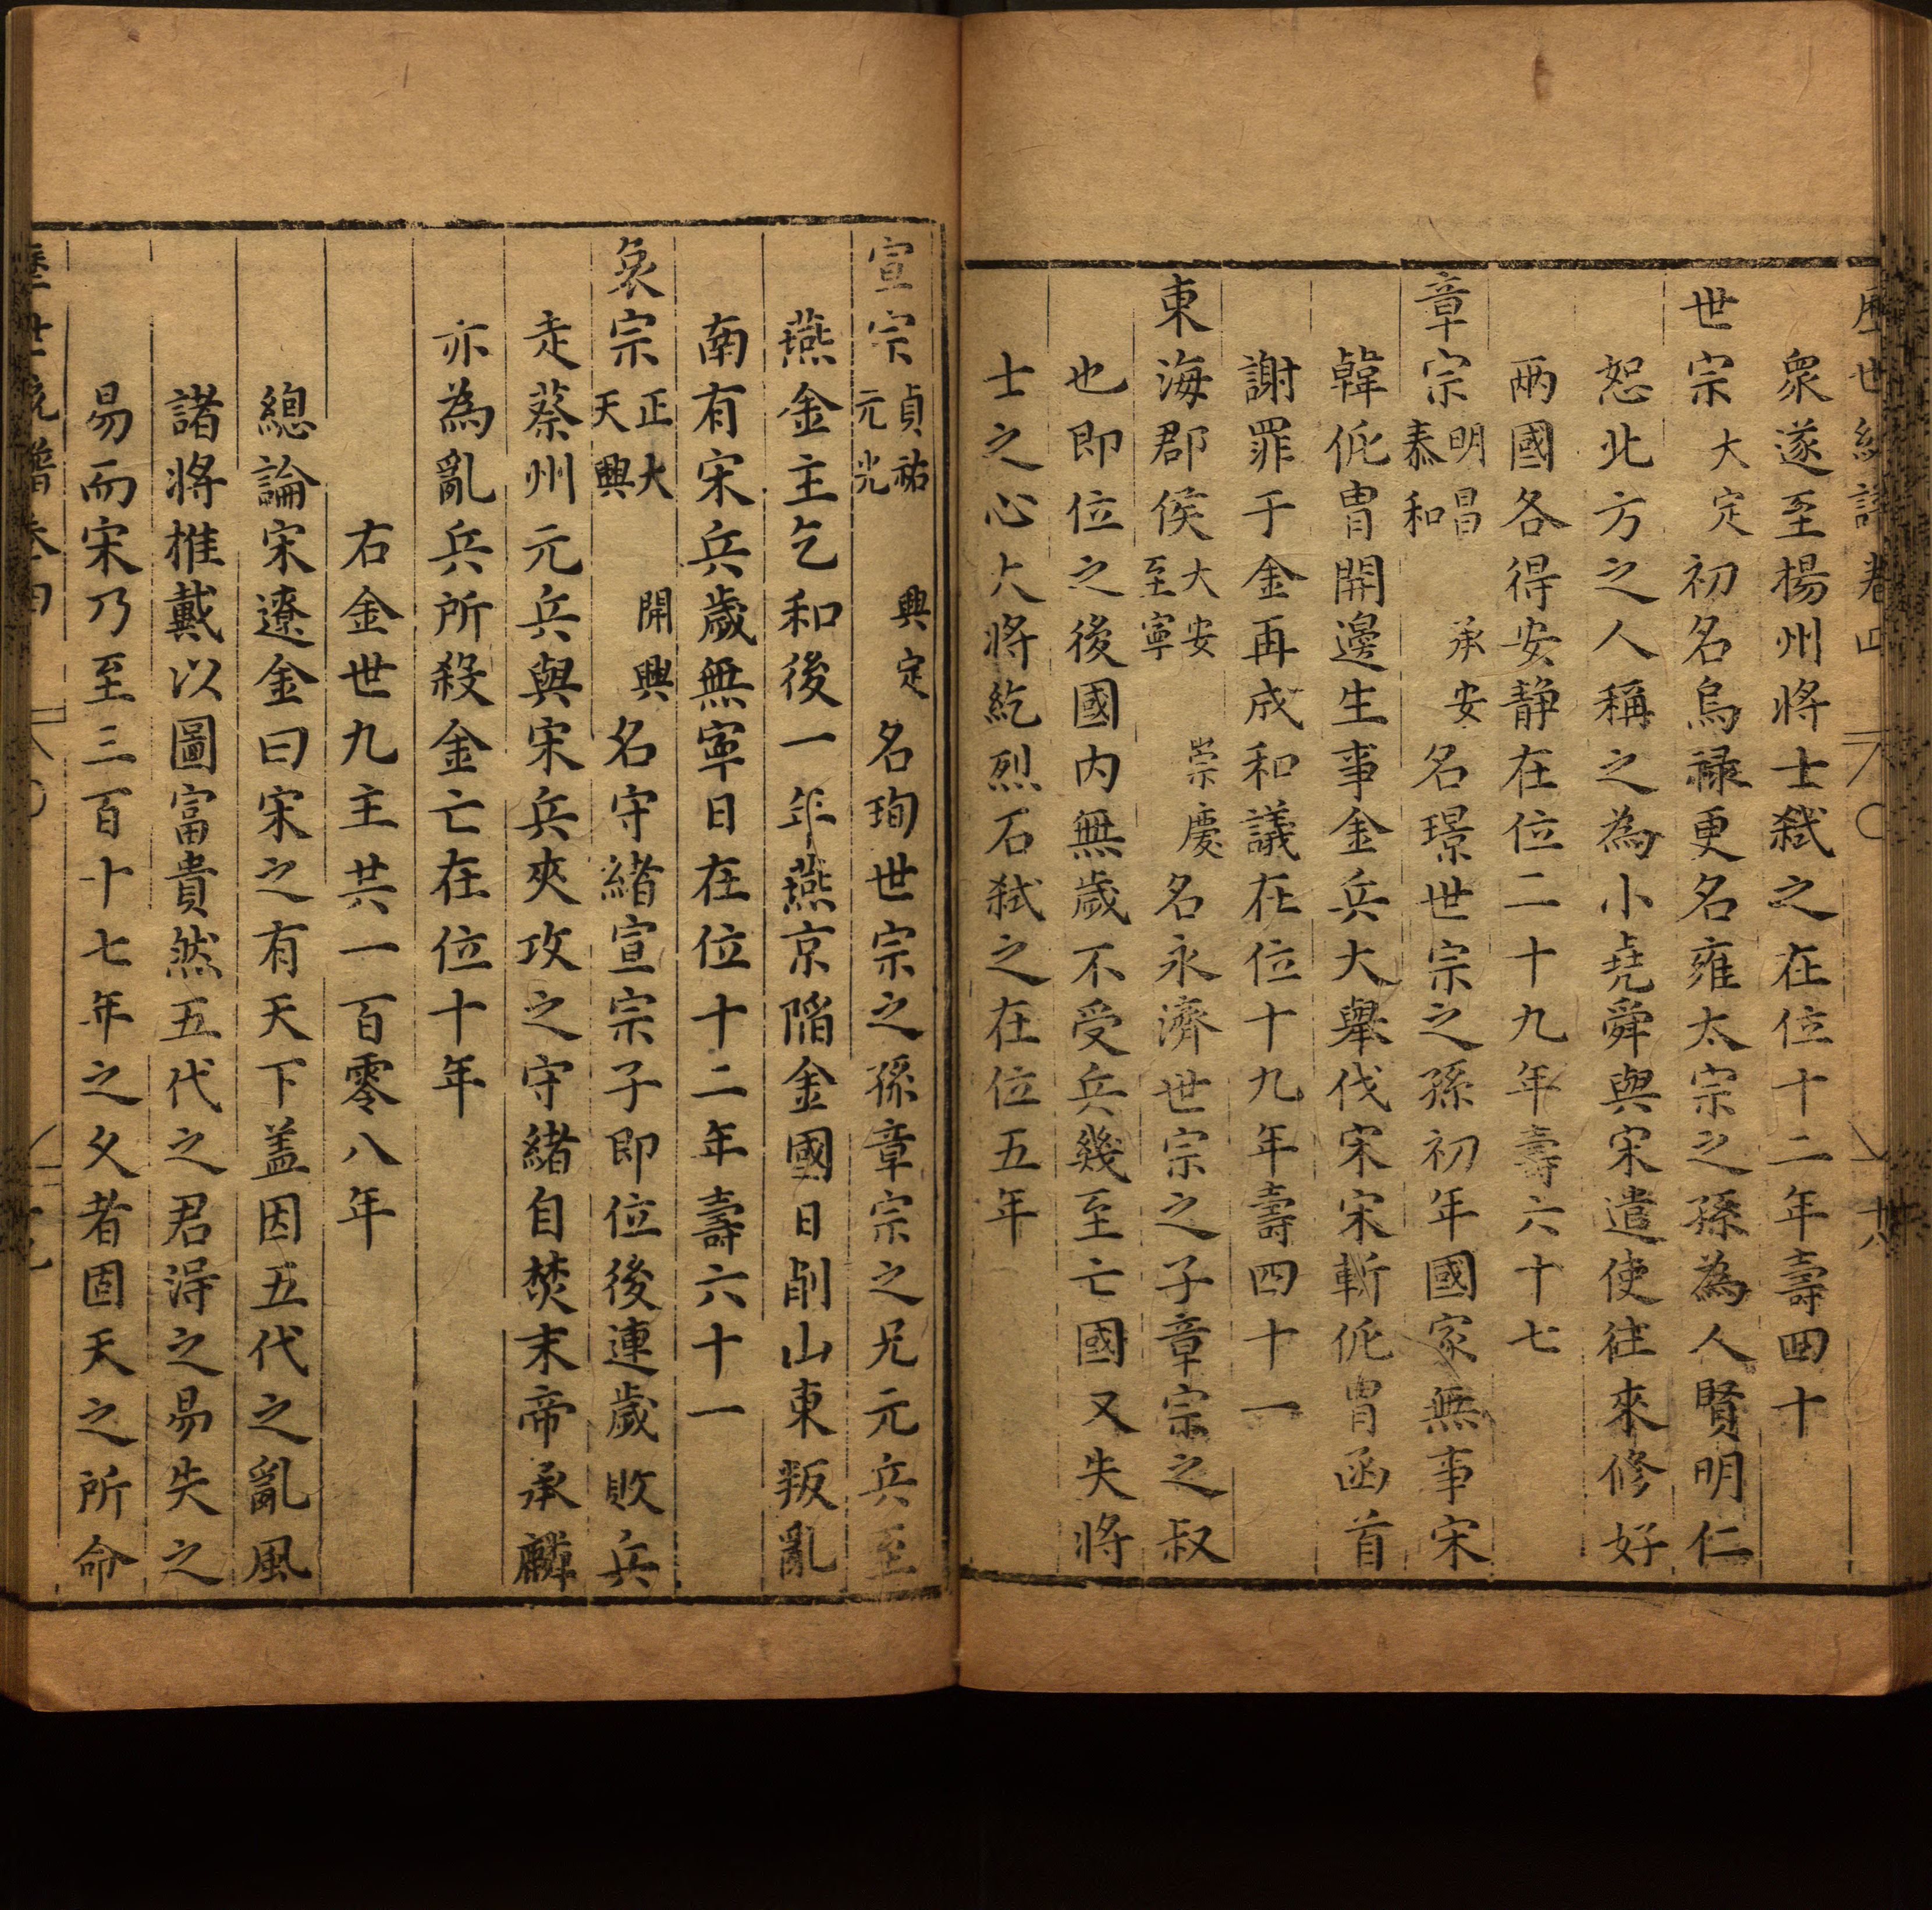 歷世統譜卷四 十八
衆遂至揚州將士弑之在位十二年壽四十
世宗大定初名烏祿更名雍太宗之孫為人賢明仁
恕北方之人稱之為小堯舜與宋遣使往來修好
兩國各得安静在位二十九年壽六十七
章宗明昌承安泰和名璟世宗之孫初年國家無事宋
韓侂胄開邊生事金兵大舉伐宋宋斬侂胄函首
謝罪于金再成和議在位十九年壽四十一
東海郡侯大安崇慶至寧名永濟世宗之子章宗之叔
也即位之後國内無歲不受兵幾至亡國又失將
士之心大將紇烈石弑之在位五年
宣宗貞祐興定元光名珣世宗之孫章宗之兄元兵至
燕金主乞和後一年燕京陷金國日削山東叛亂
南有宋兵歲無寧日在位十二年壽六十一
哀宗正大開興天興名守緒宣宗子即位後連歲敗兵
走蔡州元兵與宋兵夾攻之守緒自焚末帝承麟
亦為亂兵所殺金亡在位十年
右金世九主共一百零八年
總論宋遼金曰宋之有天下盖因五代之亂風
諸將推戴以圖富貴然五代之君得之易失之
易而宋乃至三百十七年之久者固天之所命
歷世統譜卷四